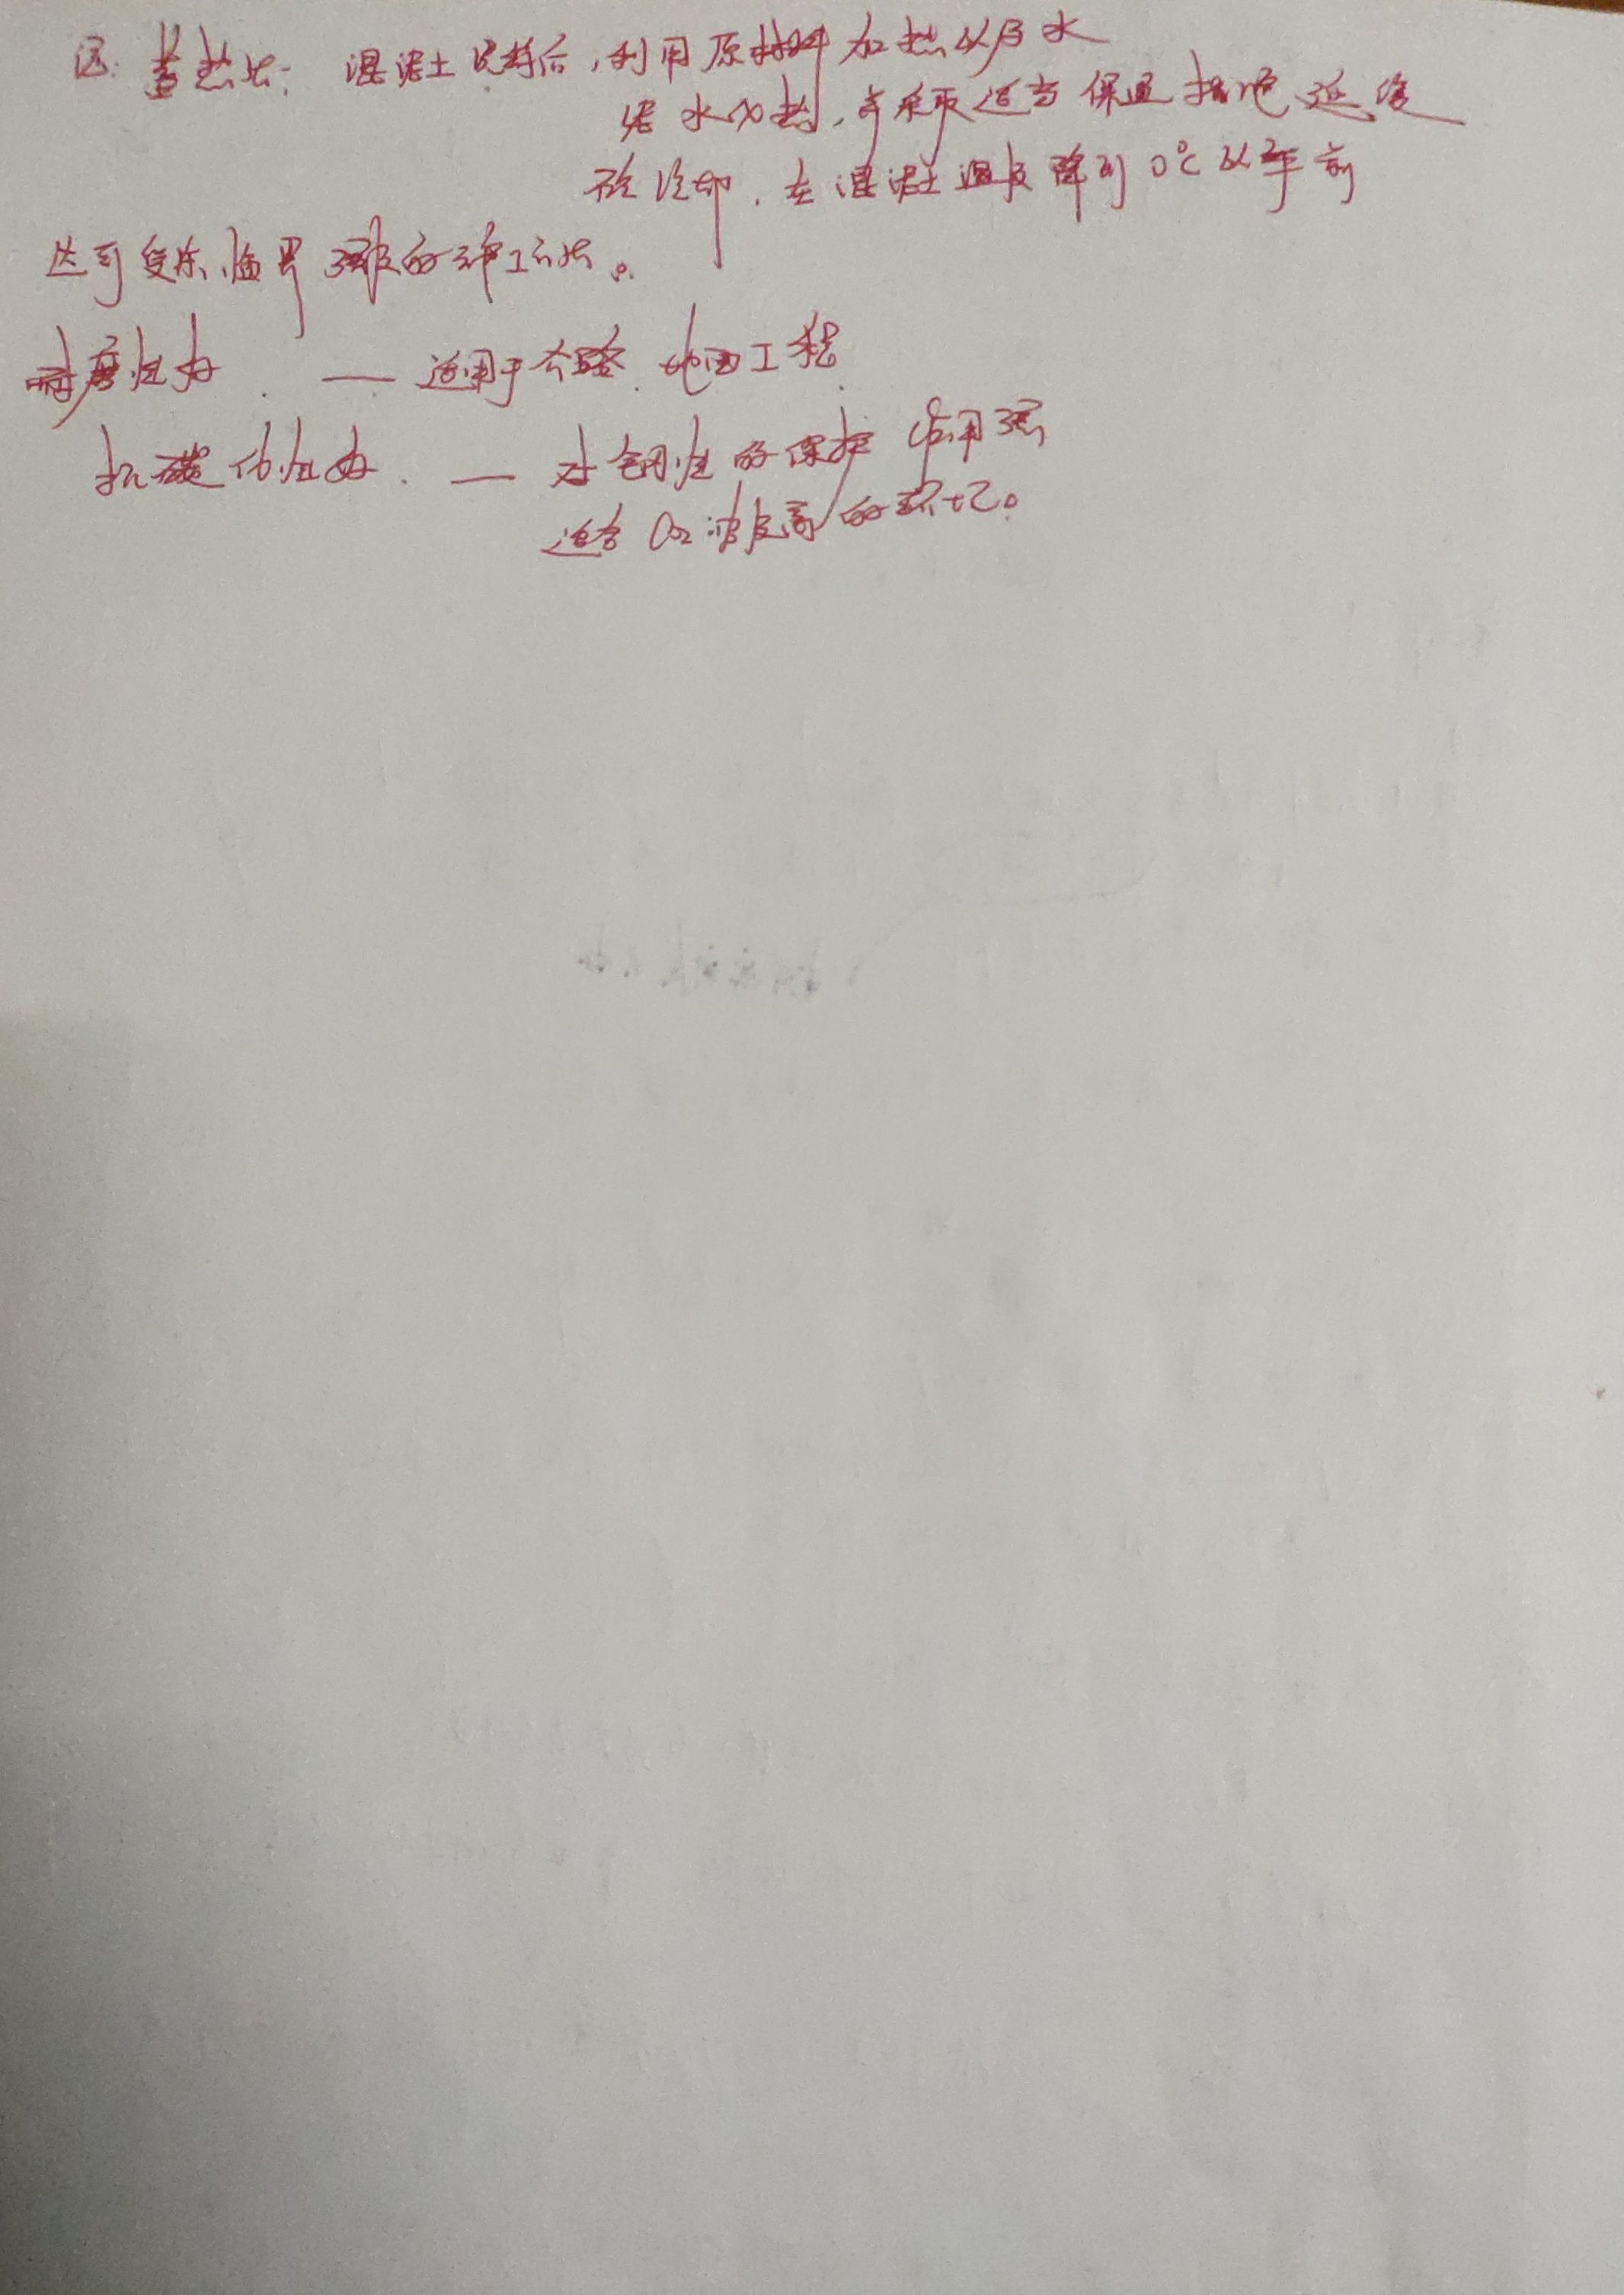 注: 蓄热法: 混凝土浇捣后,利用原材料加热以及水
泥水化热,并采取适当保温措施延缓
砼冷却,在混凝土温度降到0℃以前
达到受冻临界强度的施工方法。
耐磨性好. — 适用于公路. 地面工程.
抗碳化性好. — 对钢性的保护作用强
适合CO2浓度高的环境。